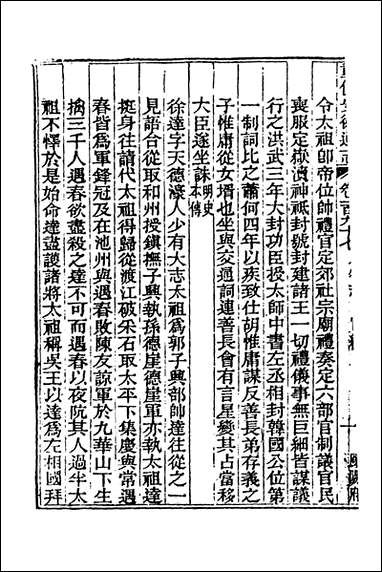 令太祖卽帝位帥禮官定郊社宗廟禮奏定六部官制議官民
喪服定嶽瀆神祗封號封建諸王一切禮儀事無巨細皆謀議
行之洪武三年大封功臣授太師中書左丞相封韓國公位第
一制詞比之蕭何四年以疾致仕胡惟庸謀反善長弟存義之
子惟庸從女壻也坐與交通詞連善長會有言星變其占當移
大臣遂坐誅明史本傳
徐達字天德濠人少有大志太祖爲郭子興部帥達往從之一
見語合從取和州授鎮撫子興執孫德崖德崖軍亦執太祖達
挺身往請代太祖得歸從渡江破采石取太平下集慶與常遇
春皆爲軍鋒冠及在池州與遇春敗陳友諒軍於九華山下生
擒三千人遇春欲盡殺之達不可而遇春以夜阬其人過半太
祖不懌於是始命達盡護諸將太祖稱吳王以達爲左相國拜